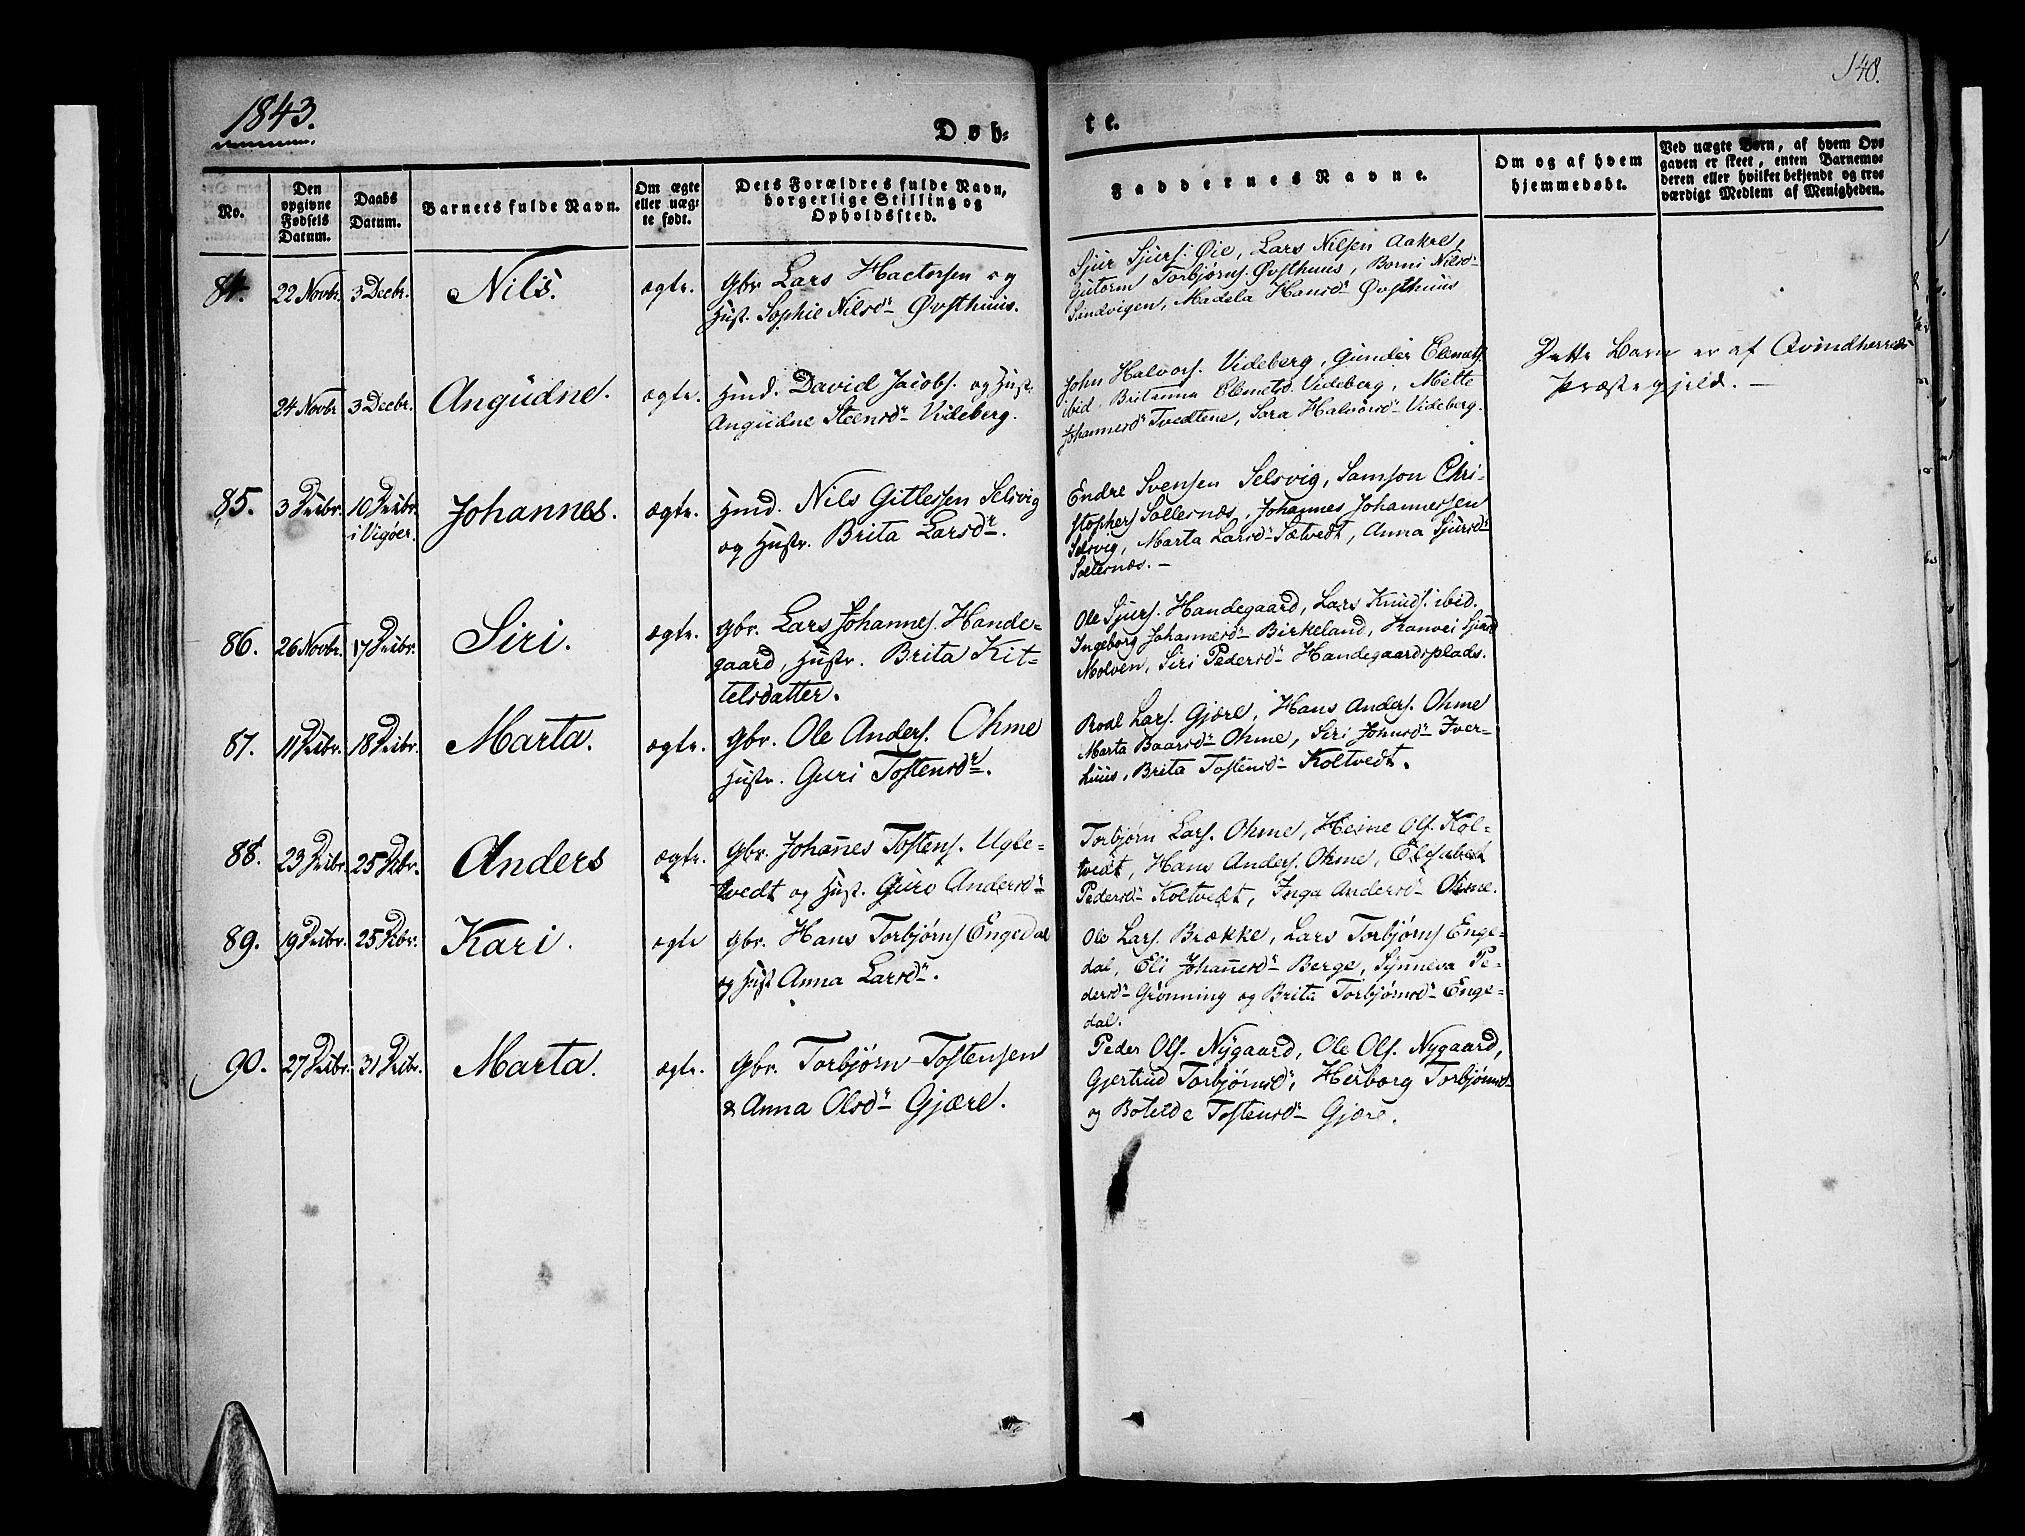 148.
1843.
Døb-
te.
No.
Den
opgivne
Fødsels
Datum.
Daabs
Datum.
Barnets fulde Navn.
Om ægte
eller uæg-
te født.
Dets Forældres fulde Navn,
borgerlige Stilling og
Opholdssted.
Faddernes Navne.
Om og af hvem
hjemmedøbt.
Ved uægte Børn, af hvem Op-
gaven er skeet, enten Barnemo-
deren eller hvilket bekjendt og tro-
værdigt Medlem af Menigheden.
84. 22 Novbr. 3 Decbr. Nils. ægte. Gbr. Lars Hactorsen og
Hust. Sophie Nilsdr Øvsthuus.
Sjur Sjurs. Øie, Lars Nilsen Aakre,
Gutorm Torbjørns. Øvsthuus, Borni Nilsdr
Sandvigen, Madela Hansdr Øvsthuus
24 Novbr 3 Decbr. Angudne. ægte. Hmd. David Jacobs. og Hust.
Angudne Steensdr Videberg.
John Halvors. Videberg, Gunder Clemets
ibid. Britanna Clemetsd. Videberg, Mette
Johannesdr Tvedtene, Sara Halvorsdr Videberg.
Dette Barn er af Qvindherreds
Præstegjeld. —
85. 3 Decbr. 10 Decbr. Johannes. ægte. Hmd. Nils Gitlesen Selsvig
i Vigøer.
og Hustr. Brita Larsdr.
Endre Svensen Selsvig, Samson Chri-
stophers Sollesnæs, Johannes Johannessen
Selsvig, Marta Larsdr Sætvedt, Anna Sjursdr
Sollesnæs. —
86. 26 Novbr. 17 Decbr. Siri. ægte. Gbr. Lars Johannes. Hande-
gaard, Hustr. Brita Kit-
telsdatter.
Ole Sjurs. Handegaard, Lars Knuds. ibid.
Ingeborg Johannesdr Birkeland, Ranvei Sjursd
Molven, Siri Pedersdr Handegaardsplads.
87. 11 Decbr. 18 Decbr. Marta. ægte. Gbr. Ole Anders. Ohme
Hustr. Guri Tostensdr.
Roal Lars. Gjære, Hans Anders. Ohme
Marta Baarsdr Ohme, Siri Johnsdr Iver-
huus, Brita Tostensdr Koltvedt.
88. 23 Decbr. 25 Decbr. Anders ægte. Gbr. Johanes Tostens. Ugle-
tvedt og Hust. Guro Andersdr
Torbjørn Lars. Ohme, Heine Ols. Kol-
tvedt, Hans Anders. Ohme, Elisabet
Pedersdr Koltvedt, Inga Andersdr Ohme.
89. 19 Decbr. 25 Decbr. Kari. ægte Gbr. Hans Torbjørns Engedal
og Hust Anna Larsdr.
Ole Lars. Brække, Lars Torbjørns Enge-
dal, Eli Johanesdr Berge, Synneva Pe-
dersdr Grønning og Brita Torbjørnsdr Enge-
dal.
90. 27 Decbr. 31 Decbr. Marta. ægte. Gbr. Torbjørn Tostensen
& Anna Olsdr Gjære.
Peder Ols. Nygaard, Ole Ols. Nygaard,
Gjertrud Torbjørnsdr, Herborg Torbjørnsdr
og Botilde Tostensdr Gjære.